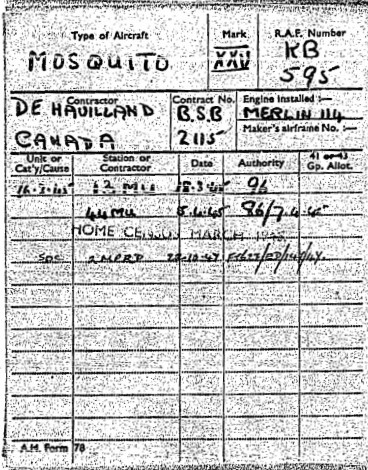 Type of Aircraft Mark R.A.F. Number
MOSQUITO XXV KB
595
Contractor Contract No. Engine installed :—
DE HAVILLAND B.S.B MERLIN 114
CANADA 2115 Maker's airframe No. :—
Unit or Station or Date Authority 41 or 43
Cat'y/Cause Contractor Gp. Allot.
16.3.45 12 MU 18.3.45 96
44 MU 5.4.45 86/7.4.45
HOME CENSUS MARCH
2 MPRD 22.10.47
A.M. Form 78